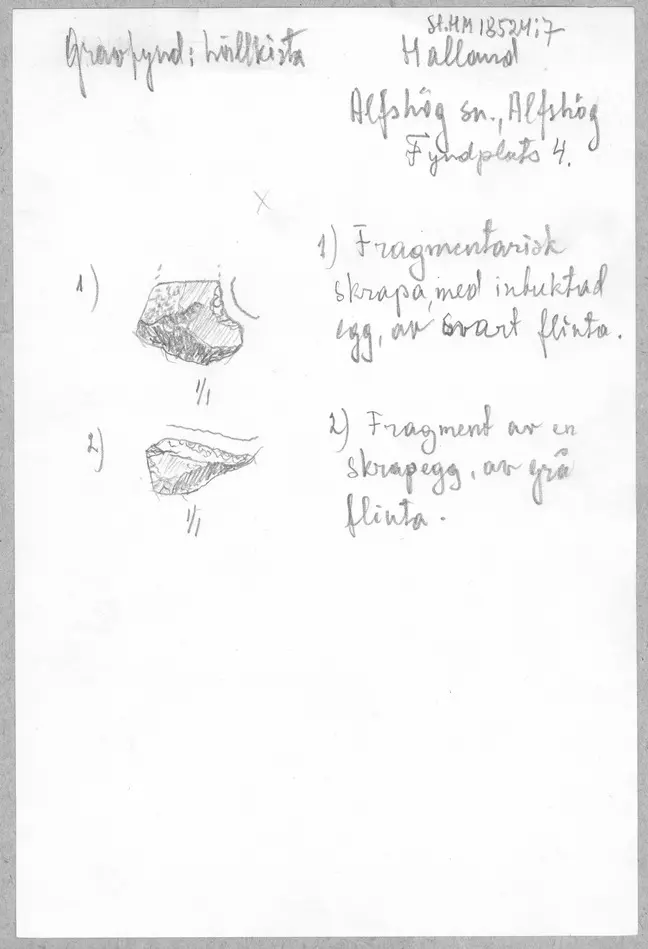 St.HM 18524:7
Gravfynd: hällkista
Halland
Alfshög sn., Alfshög
Fyndplats 4.
1)
1/1
1) Fragmentarisk
skrapa, med intuktad
egg, av svart flinta.
2)
1/1
2) Fragment av en
skrapegg, av grå
flinta.